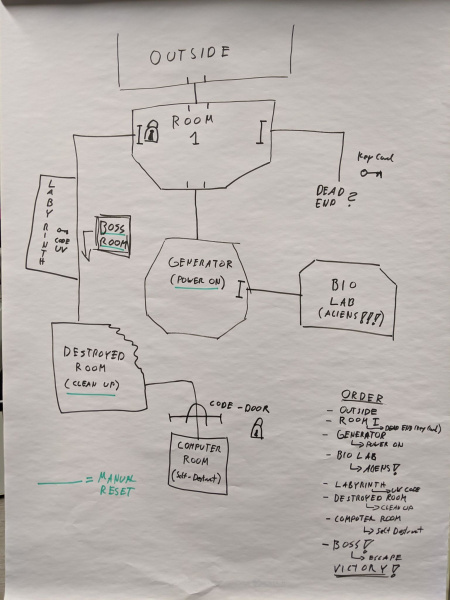 OUTSIDE
ROOM
1
LABYRINTH
CODE
UV
BOSS
ROOM
Key Card
DEAD
END?
GENERATOR
(POWER ON)
BIO
LAB
(ALIENS!!!)
DESTROYED
ROOM
(CLEAN UP)
CODE-DOOR
COMPUTER
ROOM
(Self-Destruct)
= MANUAL
RESET
ORDER
- OUTSIDE
- ROOM I
DEAD END (Key Card)
- GENERATOR
POWER ON
- BIO LAB
ALIENS!
- LABYRINTH
UV CODE
- DESTROYED ROOM
CLEAN UP
- COMPUTER ROOM
Self Destruct
- BOSS!
ESCAPE
VICTORY!